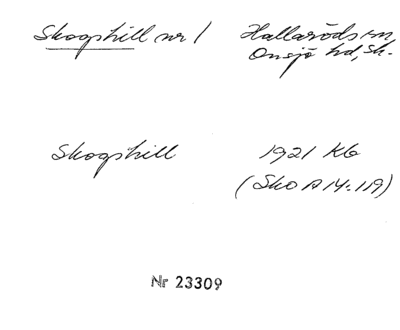 Skogshill nr 1 Hallaröds sn,
Onsjö hd, Sk.
Skogshill 1921 Kb
(Sko A 14:119)
Nr 23309